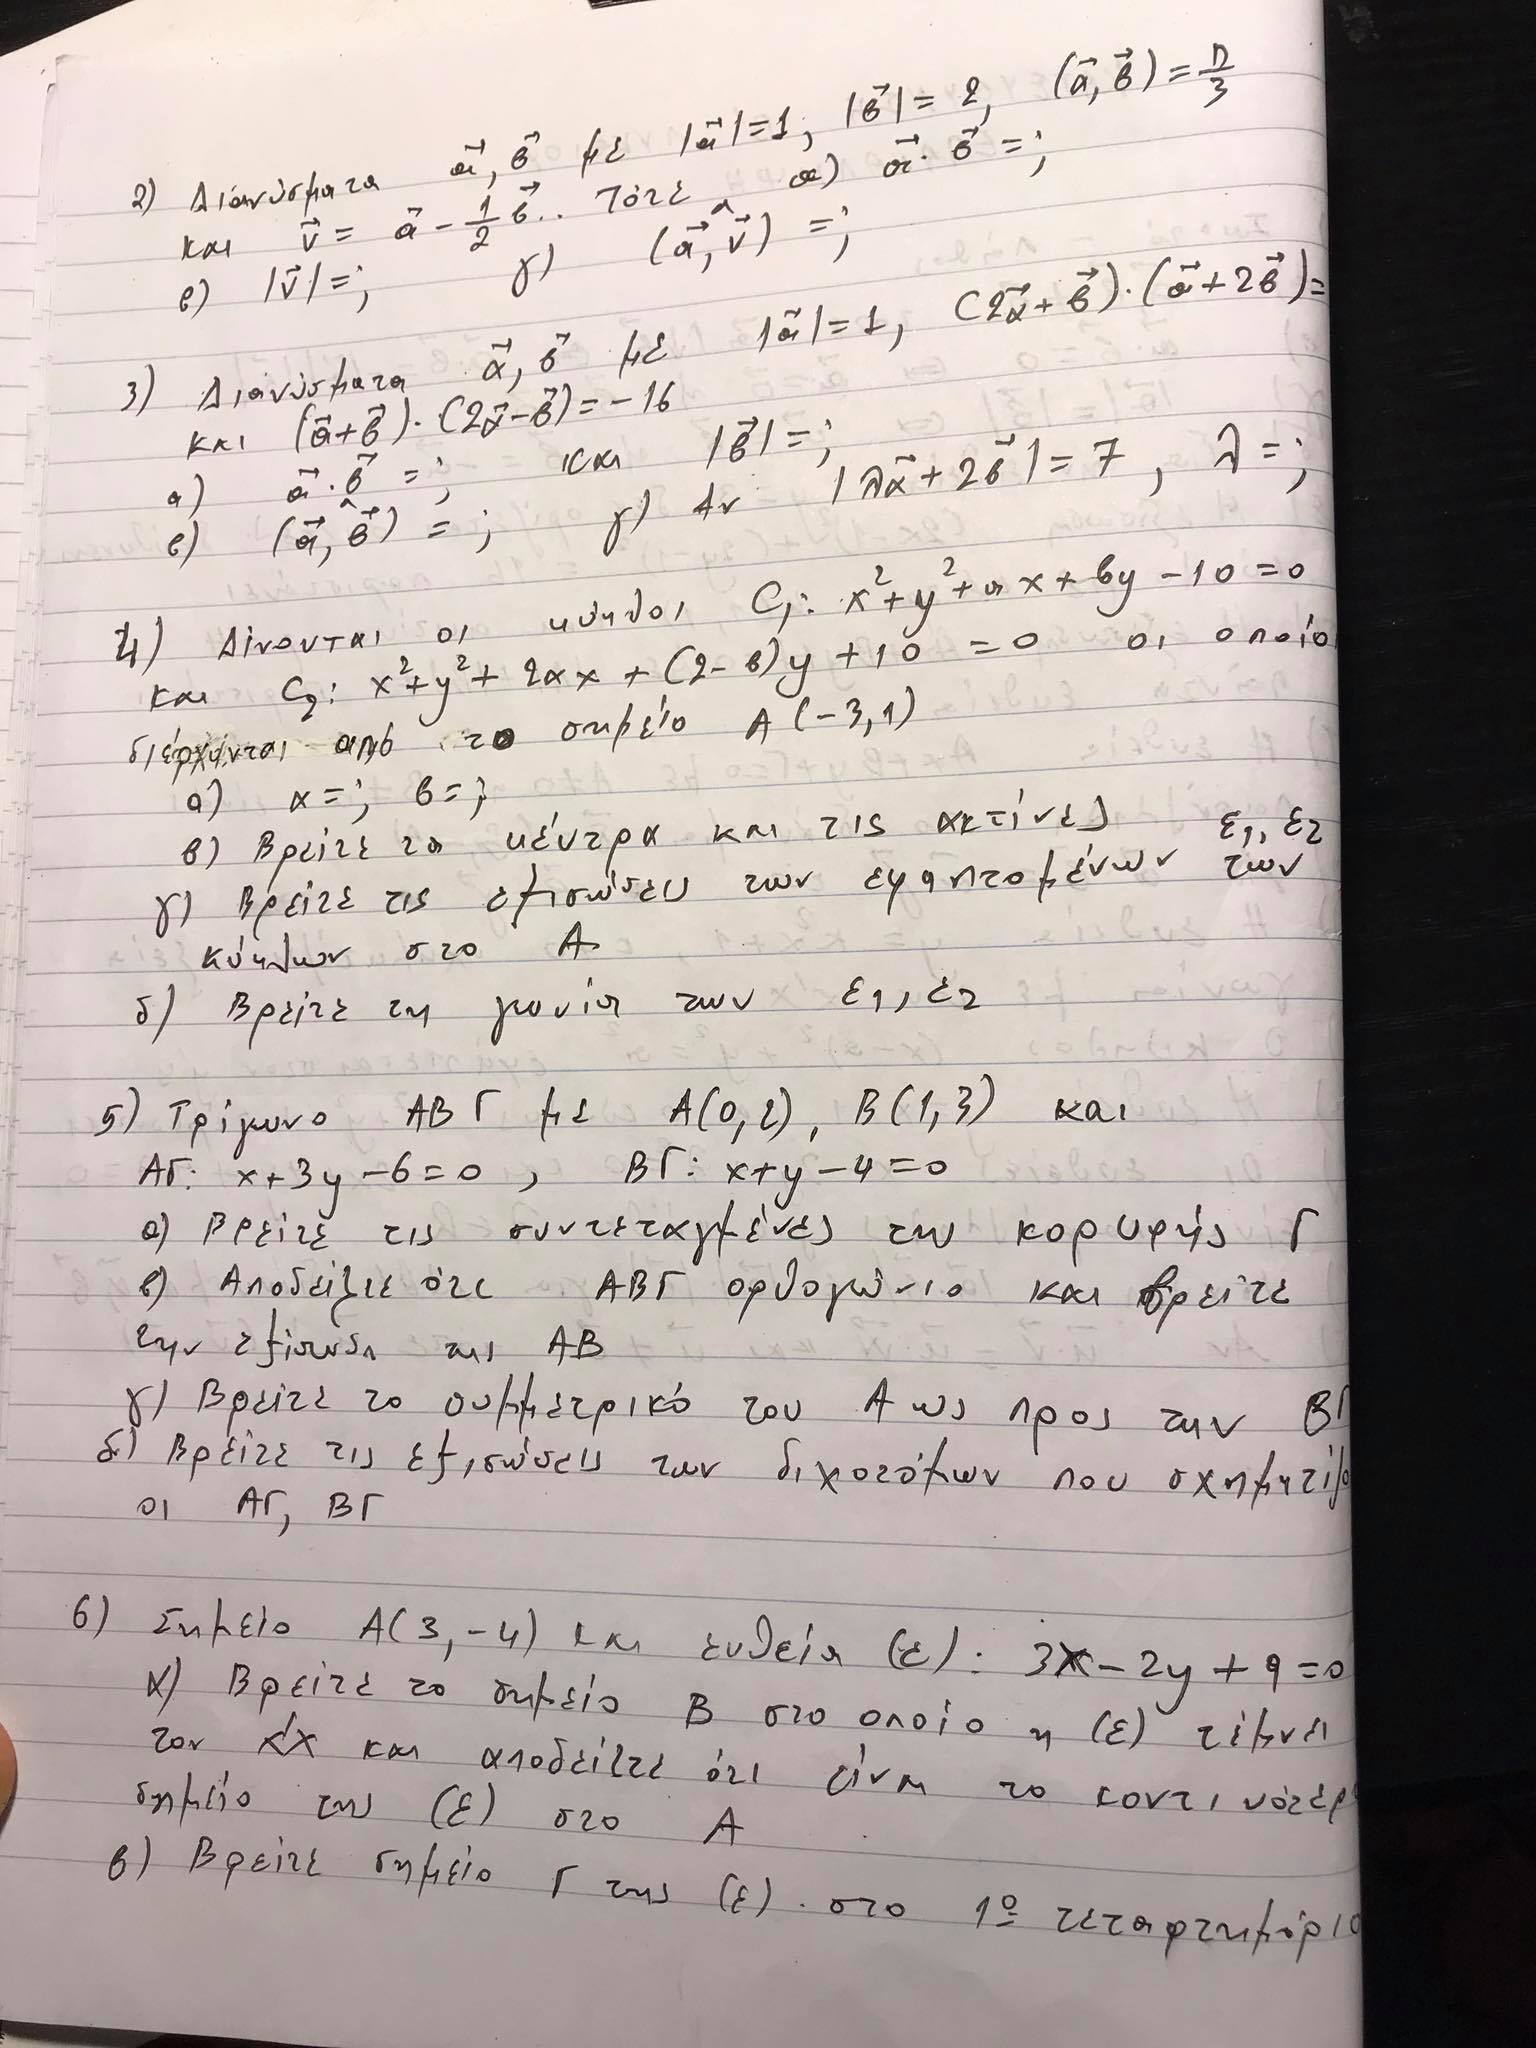 2) Διανύσματα α⃗, β⃗ με |α⃗|=1, |β⃗|=2, (α⃗, β⃗)=π/3
και v⃗ = α⃗ - 1/2 β⃗. Τότε α) α⃗·β⃗ =;
β) |v⃗|=; γ) (α⃗, v⃗) =;
3) Διανύσματα α⃗, β⃗ με |α⃗|=1, (2α⃗+β⃗)·(α⃗+2β⃗)=
και (α⃗+β⃗)·(2α⃗-β⃗)=-16
α) α⃗·β⃗ =; και |β⃗|=;
β) (α⃗, β⃗) =; γ) Αν |λα⃗+2β⃗|=7, λ=;
4) Δίνονται οι κύκλοι C₁: x²+y²+αx+βy-10=0
και C₂: x²+y²+2αx+(2-β)y+10=0 οι οποίο
διέρχονται από το σημείο Α(-3,1)
α) α=; β=;
β) Βρείτε τα κέντρα και τις ακτίνες
γ) Βρείτε τις εξισώσεις των εφαπτομένων ε₁, ε₂ των
κύκλων στο Α
δ) Βρείτε τη γωνία των ε₁, ε₂
5) Τρίγωνο ΑΒΓ με Α(0,2), Β(1,3) και
ΑΓ: x+3y-6=0, ΒΓ: x+y-4=0
α) Βρείτε τις συντεταγμένες της κορυφής Γ
β) Αποδείξτε ότι ΑΒΓ ορθογώνιο και βρείτε
την εξίσωση της ΑΒ
γ) Βρείτε το συμμετρικό του Α ως προς την ΒΓ
δ) Βρείτε τις εξισώσεις των διχοτόμων που σχηματίζο
οι ΑΓ, ΒΓ
6) Σημείο Α(3,-4) και ευθεία (ε): 3x-2y+9=0
α) Βρείτε το σημείο Β στο οποίο η (ε) τέμνει
τον x́x και αποδείξτε ότι είναι το κοντινότερο
σημείο της (ε) στο Α
β) Βρείτε σημείο Γ της (ε) στο 1º τεταρτημόριο